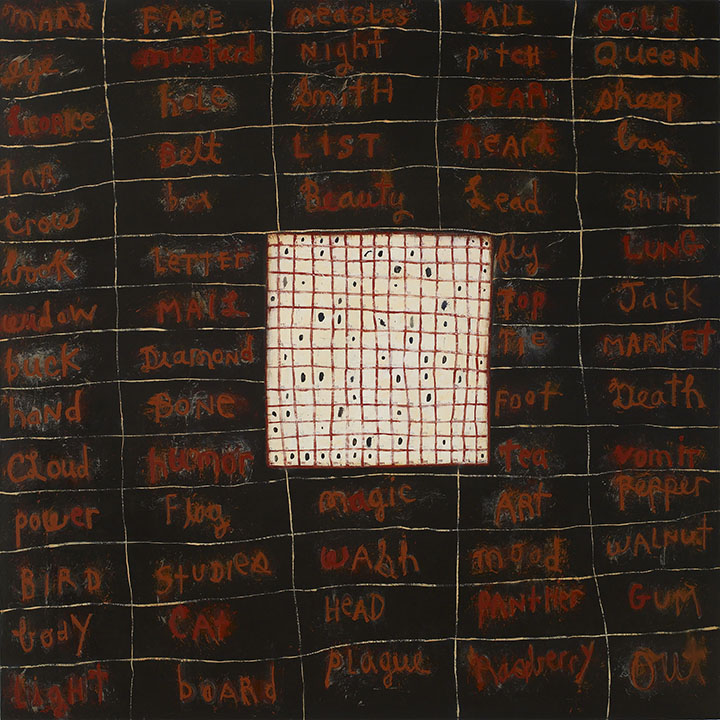 MARk FACE measles bALL GOLD
eye mustard NIGHT pitch QUEEN
LICORICE hole SmiTH BEAR sheep
tar Belt LIST heart bag
crow box Beauty Lead SHIRT
book LETTER fly LUNG
widow MAIL TOP Jack
buck DIAMOND TIE MARKET
hAND BONE FOOT Death
CLOUD HUMOR Tea vomit
power Flag magic ART Pepper
BIRD STUDIES wASh mood WALNUT
bodY CAT HEAD PANTHER GUM
LIGHT bOARD plague RaspBerry OUT